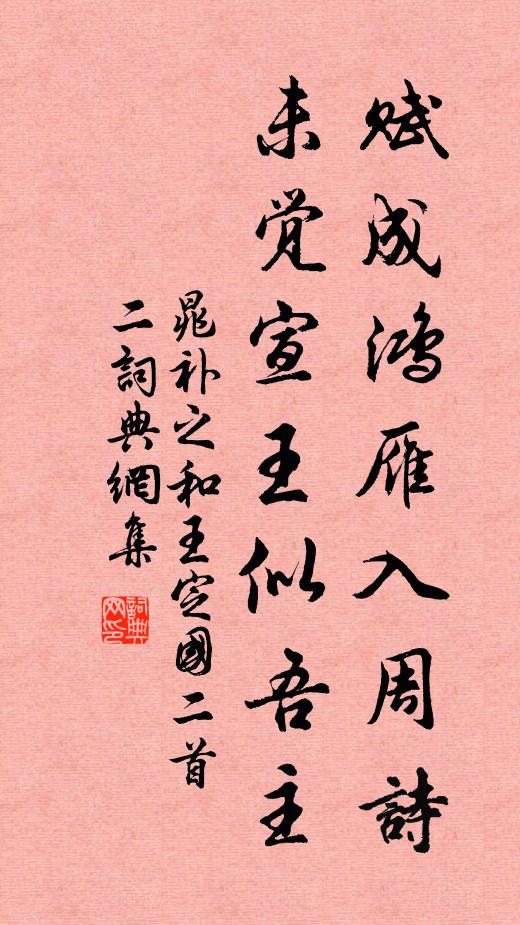 赋成鸿雁入周詩
未觉宣王似吾主
晁补之和王定國二首
二詞典網集
詞典网印